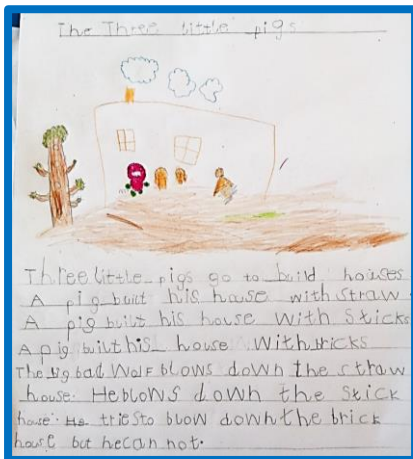 The Three little pigs
Three little pigs go to build houses
A pig built his house with straw.
A pig built his house with sticks
A pig built his house with bricks
The big bad wolf blows down the straw
house. He blows down the stick
house. He tries to blow down the brick
house but he can not.